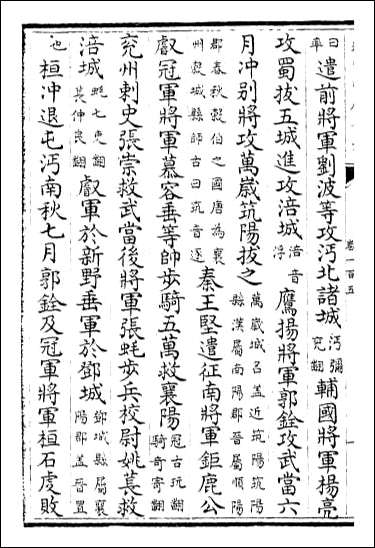 曰率遣前將軍劉波等攻沔北諸城沔彌兖翻輔國將軍楊亮
攻蜀拔五城進攻涪城涪音浮鷹揚將軍郭銓攻武當六
月沖别將攻萬歲筑陽拔之萬歲城名蓋近筑陽筑陽縣漢屬南陽郡晉屬順陽
郡春秋穀伯之國唐為襄州穀城縣師古曰筑音逐秦王堅遣征南將軍鉅鹿公
叡冠軍將軍慕容垂等帥步騎五萬救襄陽冠古玩翻騎奇寄翻
兖州刺史張崇救武當後將軍張蚝步兵校尉姚萇救
涪城蚝七吏翻萇仲良翻叡軍於新野垂軍於鄧城鄧城縣屬襄陽郡蓋晉置
也桓沖退屯沔南秋七月郭銓及冠軍將軍桓石虔敗
卷一百五